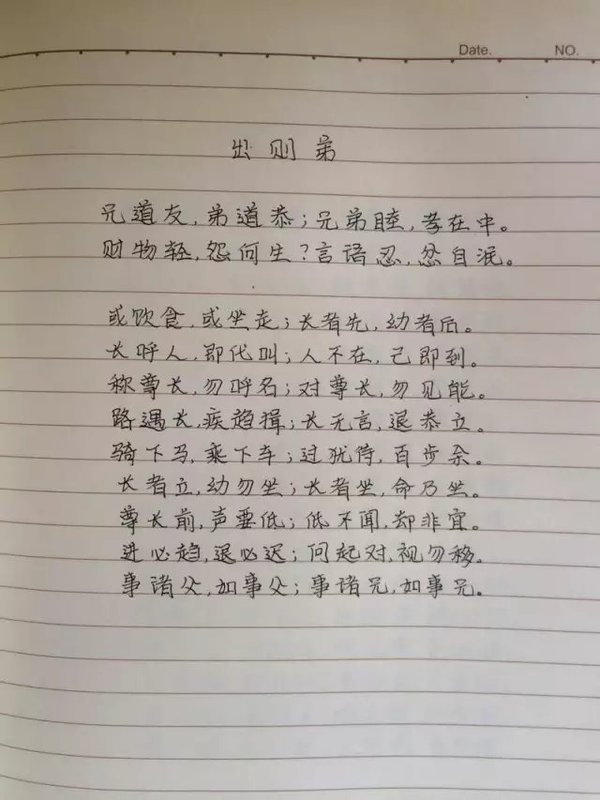 Date. NO.
出则弟
兄道友,弟道恭;兄弟睦,孝在中。
财物轻,怨何生?言语忍,忿自泯。
或饮食,或坐走;长者先,幼者后。
长呼人,即代叫;人不在,己即到。
称尊长,勿呼名;对尊长,勿见能。
路遇长,疾趋揖;长无言,退恭立。
骑下马,乘下车;过犹待,百步余。
长者立,幼勿坐;长者坐,命乃坐。
尊长前,声要低;低不闻,却非宜。
进必趋,退必迟;问起对,视勿移。
事诸父,如事父;事诸兄,如事兄。